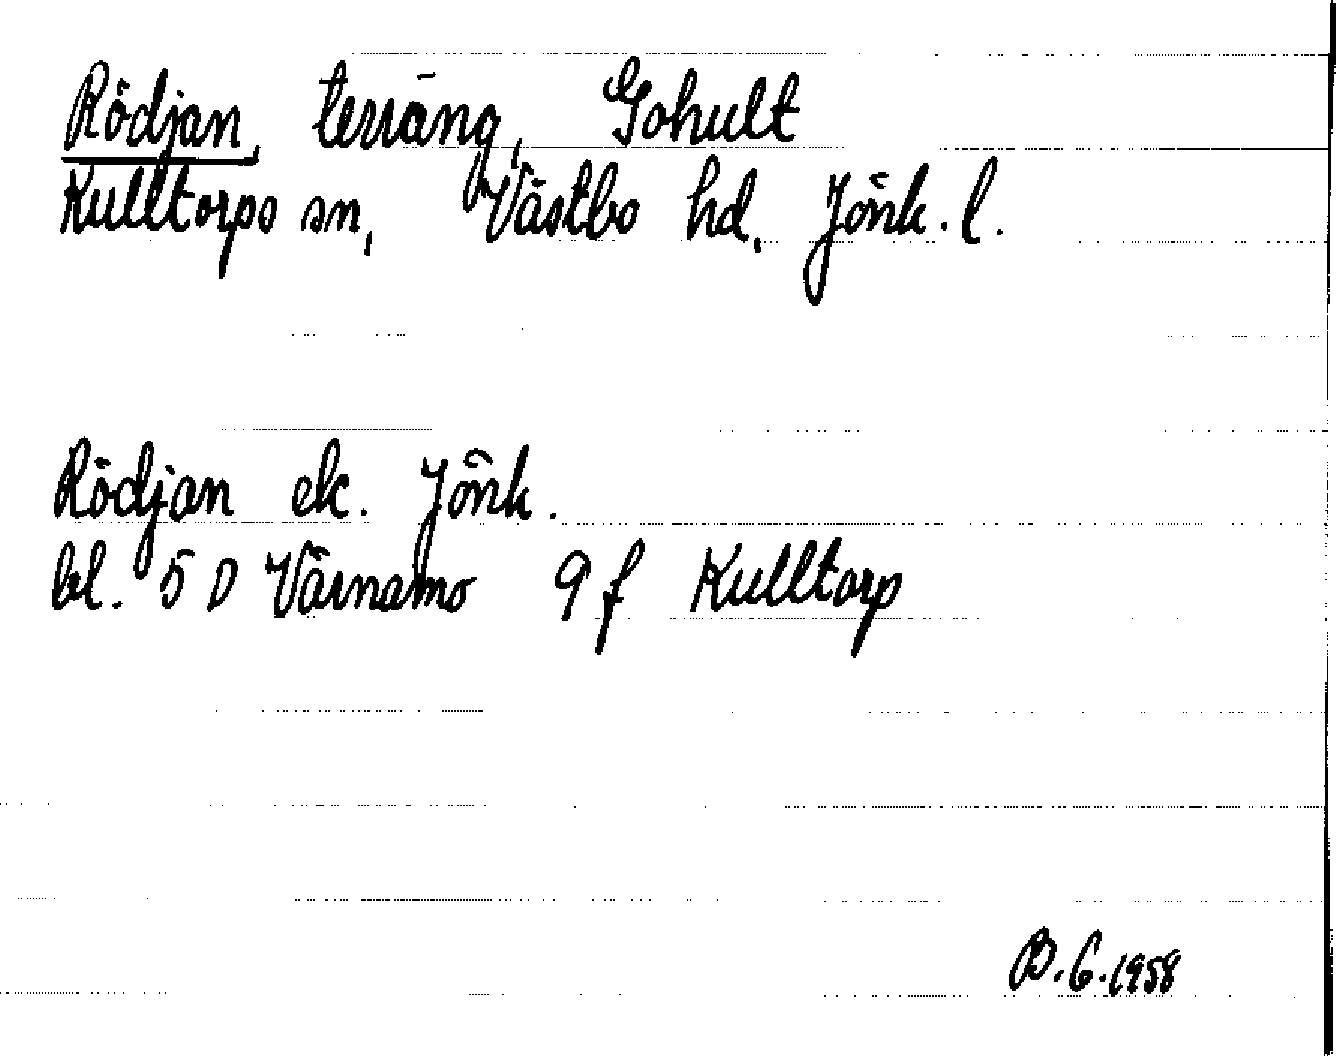 Rödjan, terräng, Gohult
Kulltorps sn, Västbo hd, Jönk. l.
Rödjan ek. Jönk.
bl. 5 D Värnamo 9 f Kulltorp
B. G. 1958